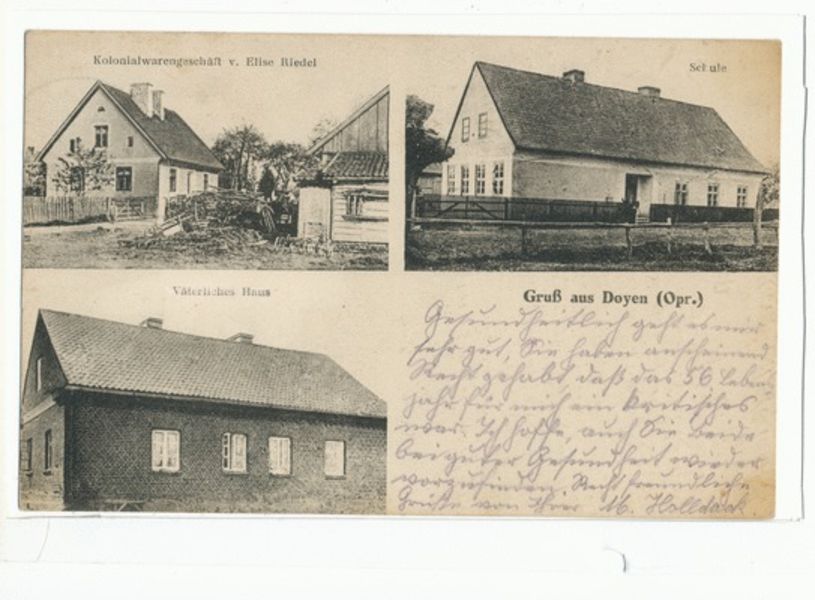 Kolonialwarengeschäft v. Elise Riedel
Schule
Väterliches Haus
Gruß aus Doyen (Opr.)
Gesundheitlich geht es mir
sehr gut, Sie haben anscheinend
Recht gehabt daß das 56 Lebens-
jahr für mich ein kritisches
war. Ich hoffe, auch Sie beide
bei guter Gesundheit wieder
vorzufinden. Recht freundliche
Grüße von Ihrer M. Holldack.